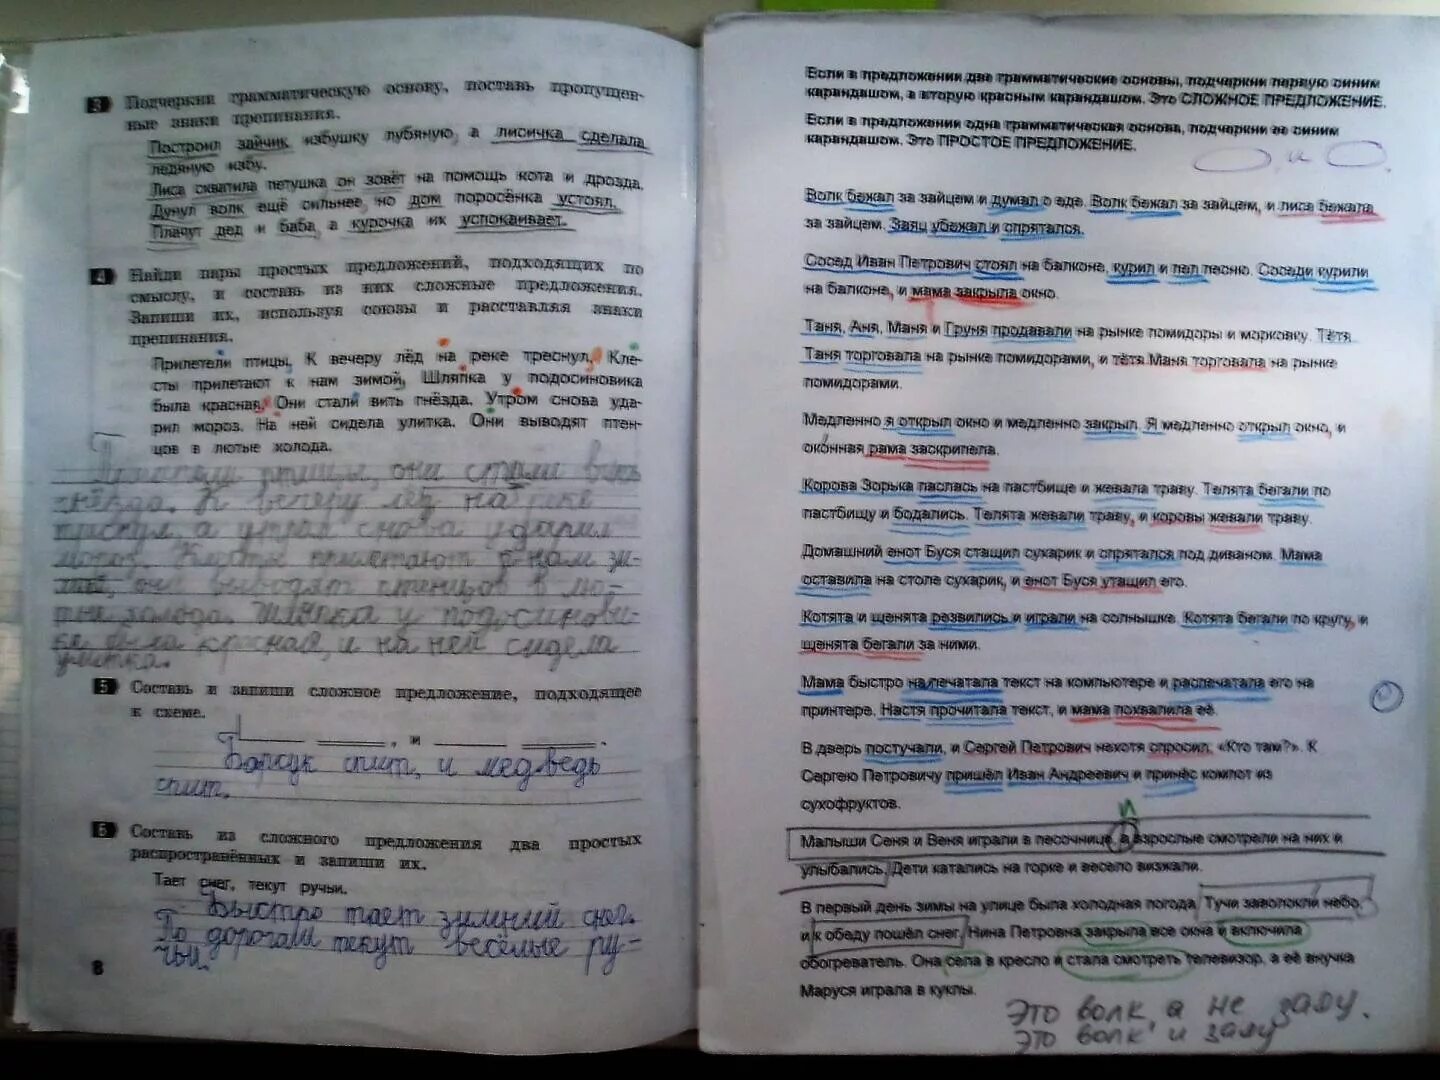 3 Подчеркни грамматическую основу, поставь пропущен-
ные знаки препинания.
Построил зайчик избушку лубяную, а лисичка сделала
ледяную избу.
Лиса схватила петушка он зовёт на помощь кота и дрозда.
Дунул волк ещё сильнее, но дом поросёнка устоял.
Плачут дед и баба, а курочка их успокаивает.
4 Найди пары простых предложений, подходящих по
смыслу, и составь из них сложные предложения.
Запиши их, используя союзы и расставляя знаки
препинания.
Прилетели птицы. К вечеру лёд на реке треснул. Кле-
сты прилетают к нам зимой. Шляпка у подосиновика
была красная. Они стали вить гнёзда. Утром снова уда-
рил мороз. На ней сидела улитка. Они выводят птен-
цов в лютые холода.
Прилетели птицы, они стали вить
гнёзда. К вечеру лёд на реке
треснул, а утром снова ударил
мороз. Клесты прилетают к нам зи-
мой, они выводят птенцов в лю-
тые холода. Шляпка у подосинови-
ка была красная, и на ней сидела
улитка.
5 Составь и запиши сложное предложение, подходящее
к схеме.
, и .
Барсук спит, и медведь
спит.
6 Составь из сложного предложения два простых
распространённых и запиши их.
Тает снег, текут ручьи.
Быстро тает зимний снег.
По дорогам текут весёлые ру-
чьи.
8
Если в предложении две грамматические основы, подчеркни первую синим
карандашом, а вторую красным карандашом. Это СЛОЖНОЕ ПРЕДЛОЖЕНИЕ.
Если в предложении одна грамматическая основа, подчеркни ее синим
карандашом. Это ПРОСТОЕ ПРЕДЛОЖЕНИЕ.
, и .
Волк бежал за зайцем и думал о еде. Волк бежал за зайцем, и лиса бежала
за зайцем. Заяц убежал и спрятался.
Сосед Иван Петрович стоял на балконе, курил и пел песню. Соседи курили
на балконе, и мама закрыла окно.
Таня, Аня, Маня и Груня продавали на рынке помидоры и морковку. Тётя
Таня торговала на рынке помидорами, и тётя Маня торговала на рынке
помидорами.
Медленно я открыл окно и медленно закрыл. Я медленно открыл окно, и
оконная рама заскрипела.
Корова Зорька паслась на пастбище и жевала траву. Телята бегали по
пастбищу и бодались. Телята жевали траву, и коровы жевали траву.
Домашний енот Буся стащил сухарик и спрятался под диваном. Мама
оставила на столе сухарик, и енот Буся утащил его.
Котята и щенята резвились и играли на солнышке. Котята бегали по кругу, и
щенята бегали за ними.
Мама быстро напечатала текст на компьютере и распечатала его на
принтере. Настя прочитала текст, и мама похвалила её.
В дверь постучали, и Сергей Петрович нехотя спросил: «Кто там?». К
Сергею Петровичу пришёл Иван Андреевич и принёс компот из
сухофруктов.
и
Малыши Сеня и Веня играли в песочнице, а взрослые смотрели на них и
улыбались. Дети катались на горке и весело визжали.
В первый день зимы на улице была холодная погода. Тучи заволокли небо,
и к обеду пошёл снег. Нина Петровна закрыла все окна и включила
обогреватель. Она села в кресло и стала смотреть телевизор, а её внучка
Маруся играла в куклы.
Это волк, а не заяц.
Это волк и заяц